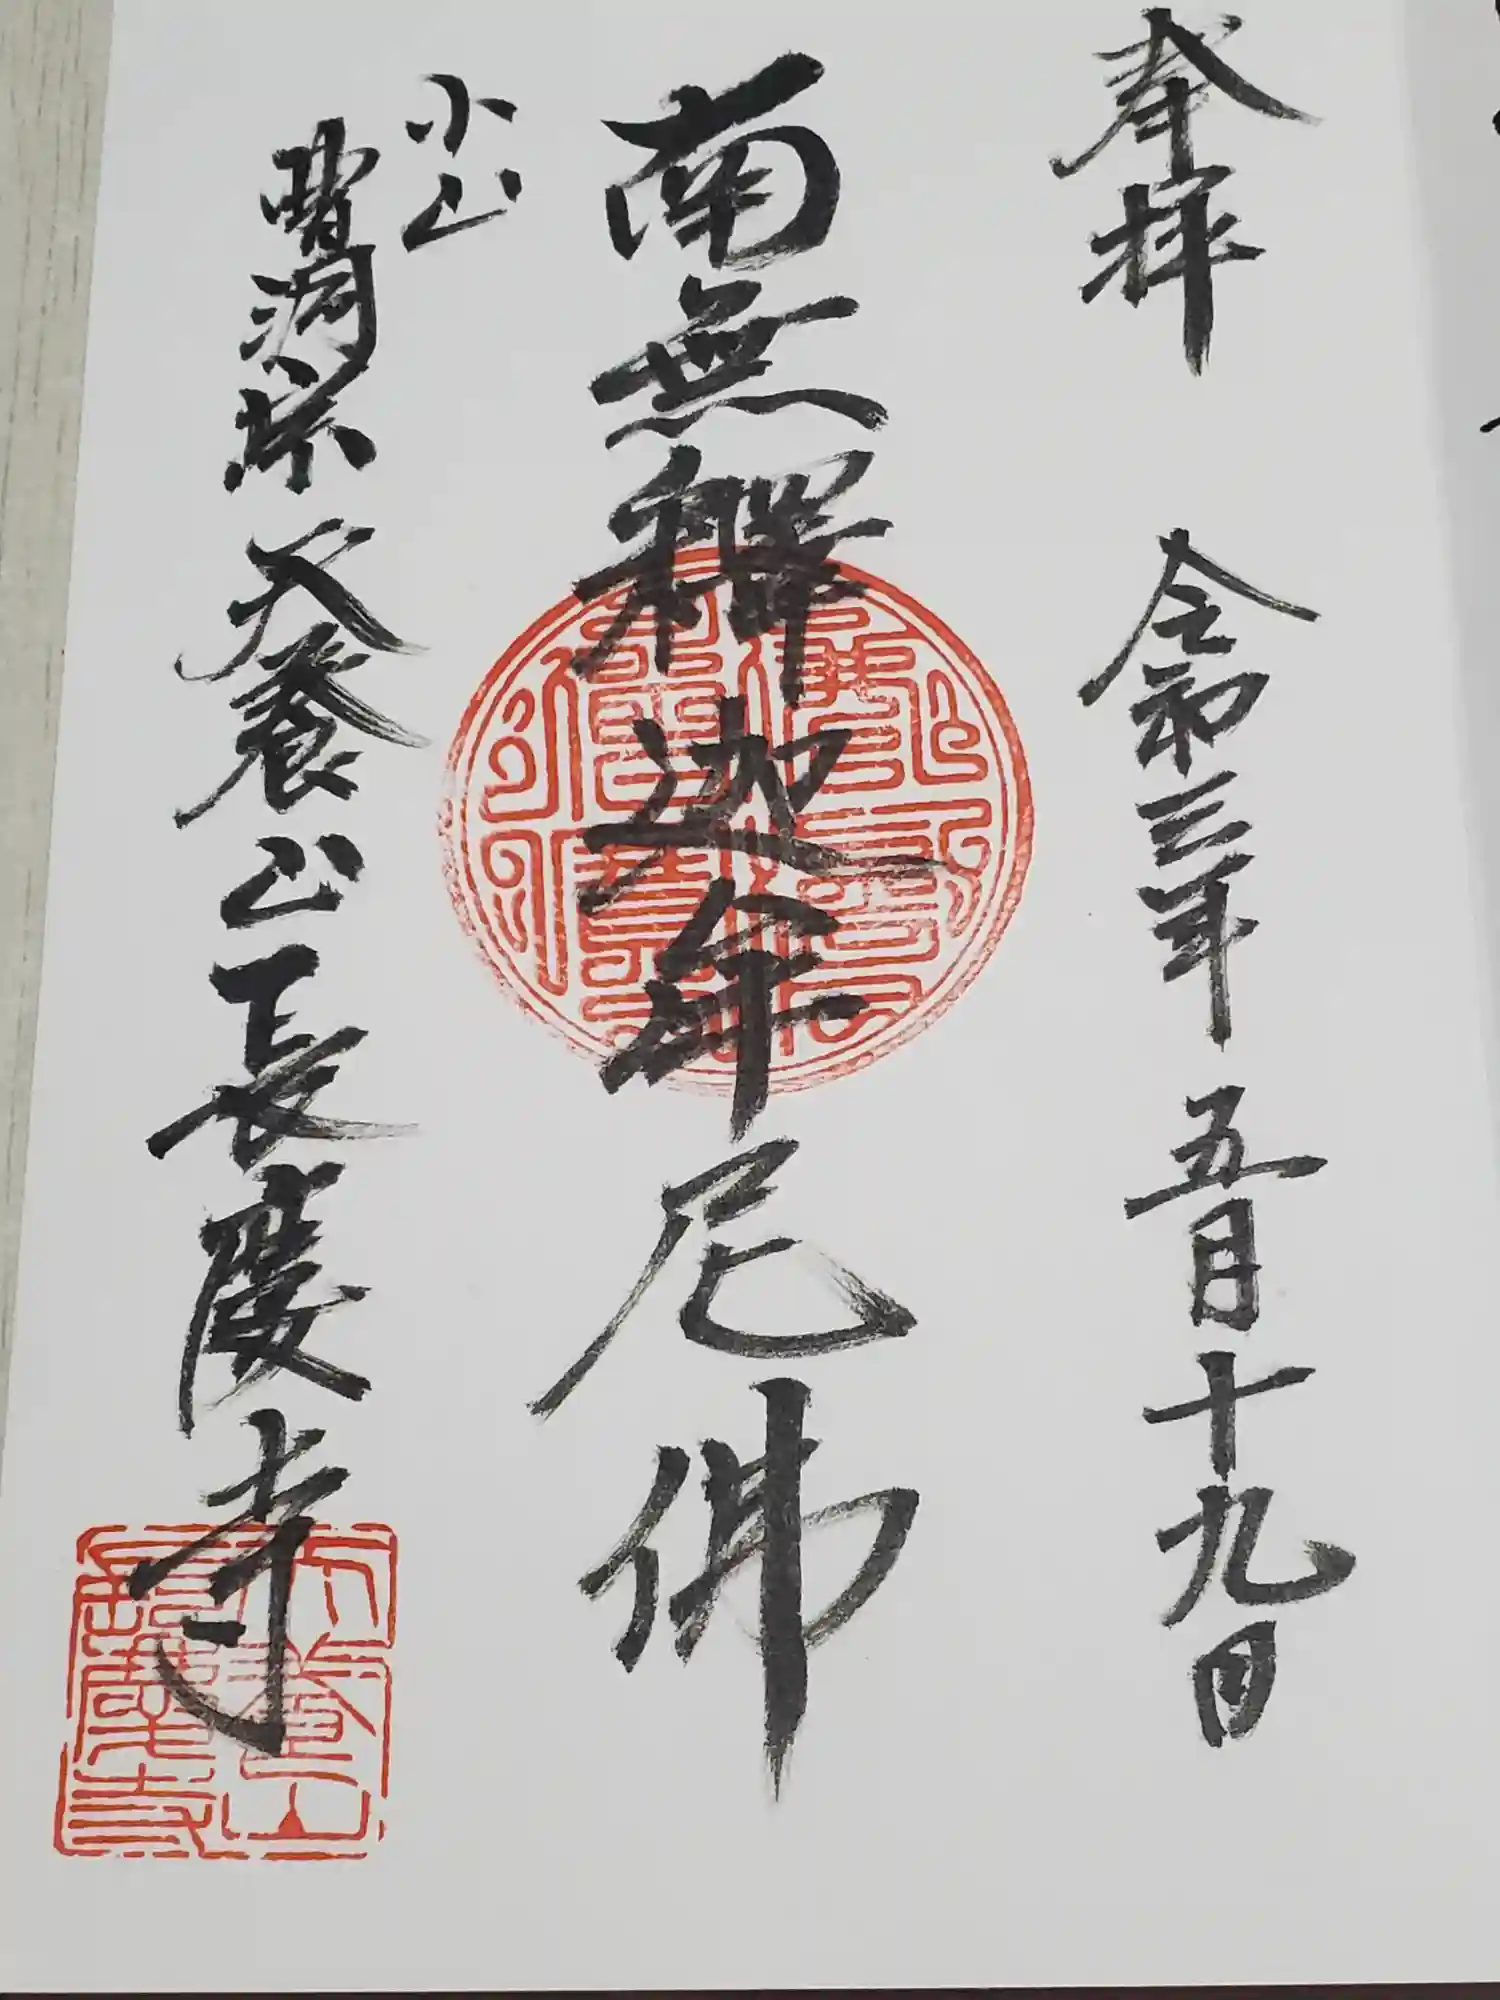 奉拝
令和三年五月十九日
南無釋迦牟尼佛
小山
曹洞宗 養山長慶寺